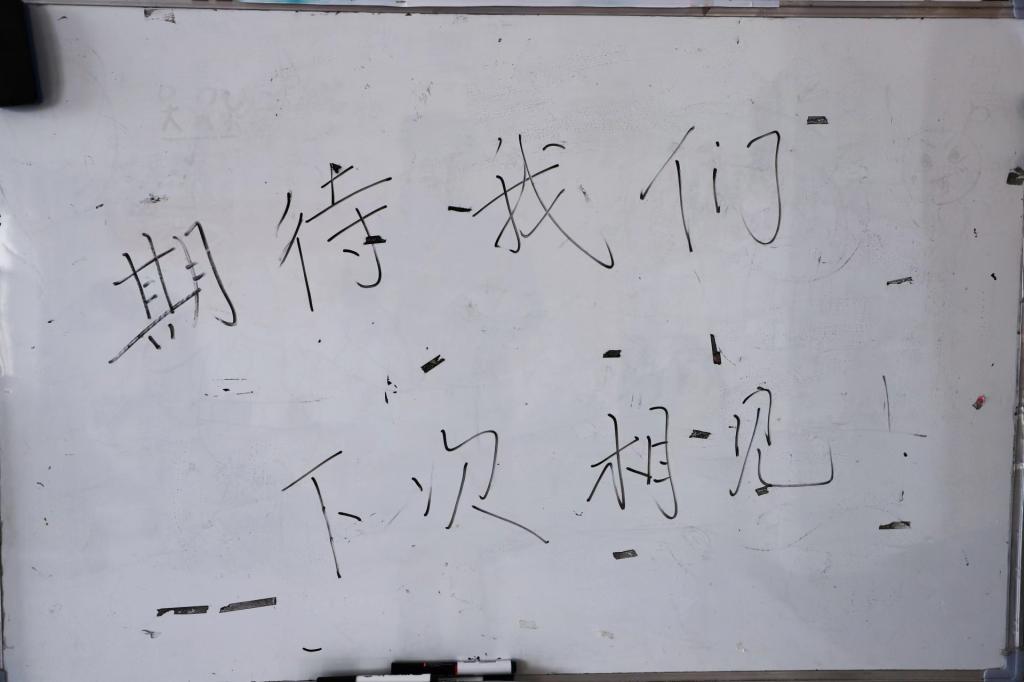 期待我们
下次相见